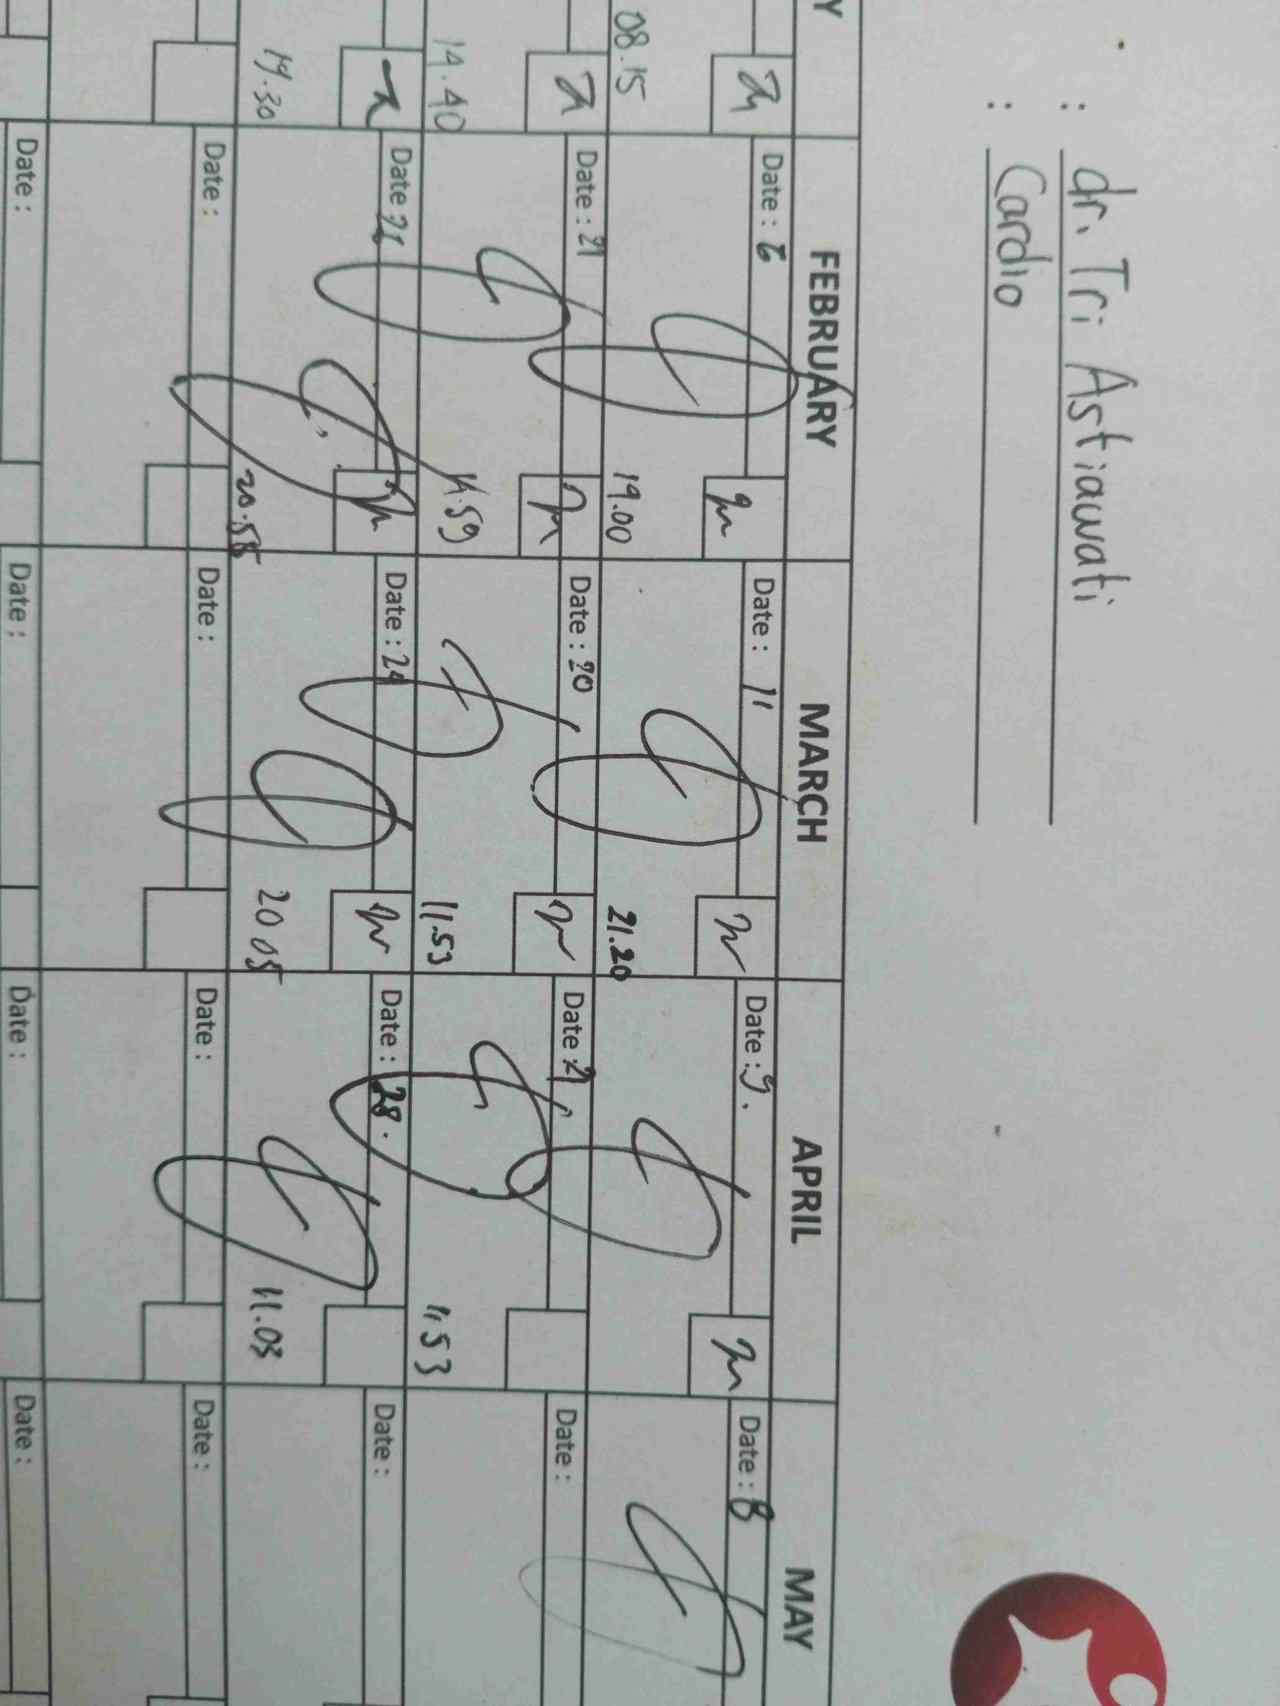 : dr. Tri Astiawati
: Cardio
Y FEBRUARY MARCH APRIL MAY
Date : 6 Date : 11 Date : 9. Date : 8
08.15 19.00 21.20
Date : 21 Date : 20 Date : 21 Date :
14.40 14.59 11.53 11 53
Date : Date : 24 Date : 28. Date :
19.30 20.58 20 05 11.03
Date : Date : Date : Date :
Date : Date : Date : Date :